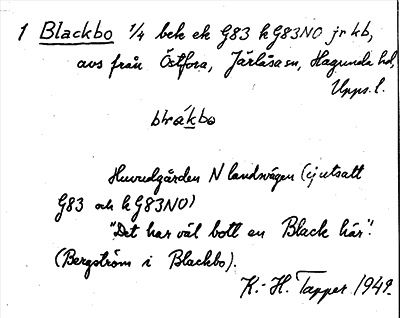 1 Blackbo 1/4 bek ek G83 k G83NO jr kb,
avs från Östfora, Järlåsa sn, Hagunda hd,
Upps. l.
blákbo
Huvudgården N landsvägen (ej utsatt
G83 och k G83NO)
"Det har väl bott en Black här".
(Bergström i Blackbo).
K.-H. Tapper 1949.